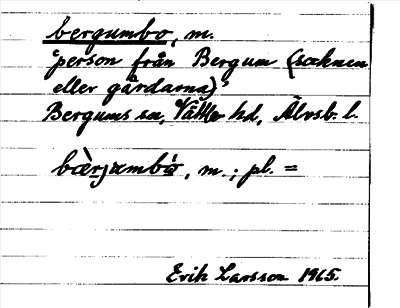 bergumbo, m.
'person från Bergum (socknen
eller gårdarna)'
Bergums sn, Vättle hd, Älvsb. l.
bærjambó, m.; pl. =
Erik Larsson 1965.